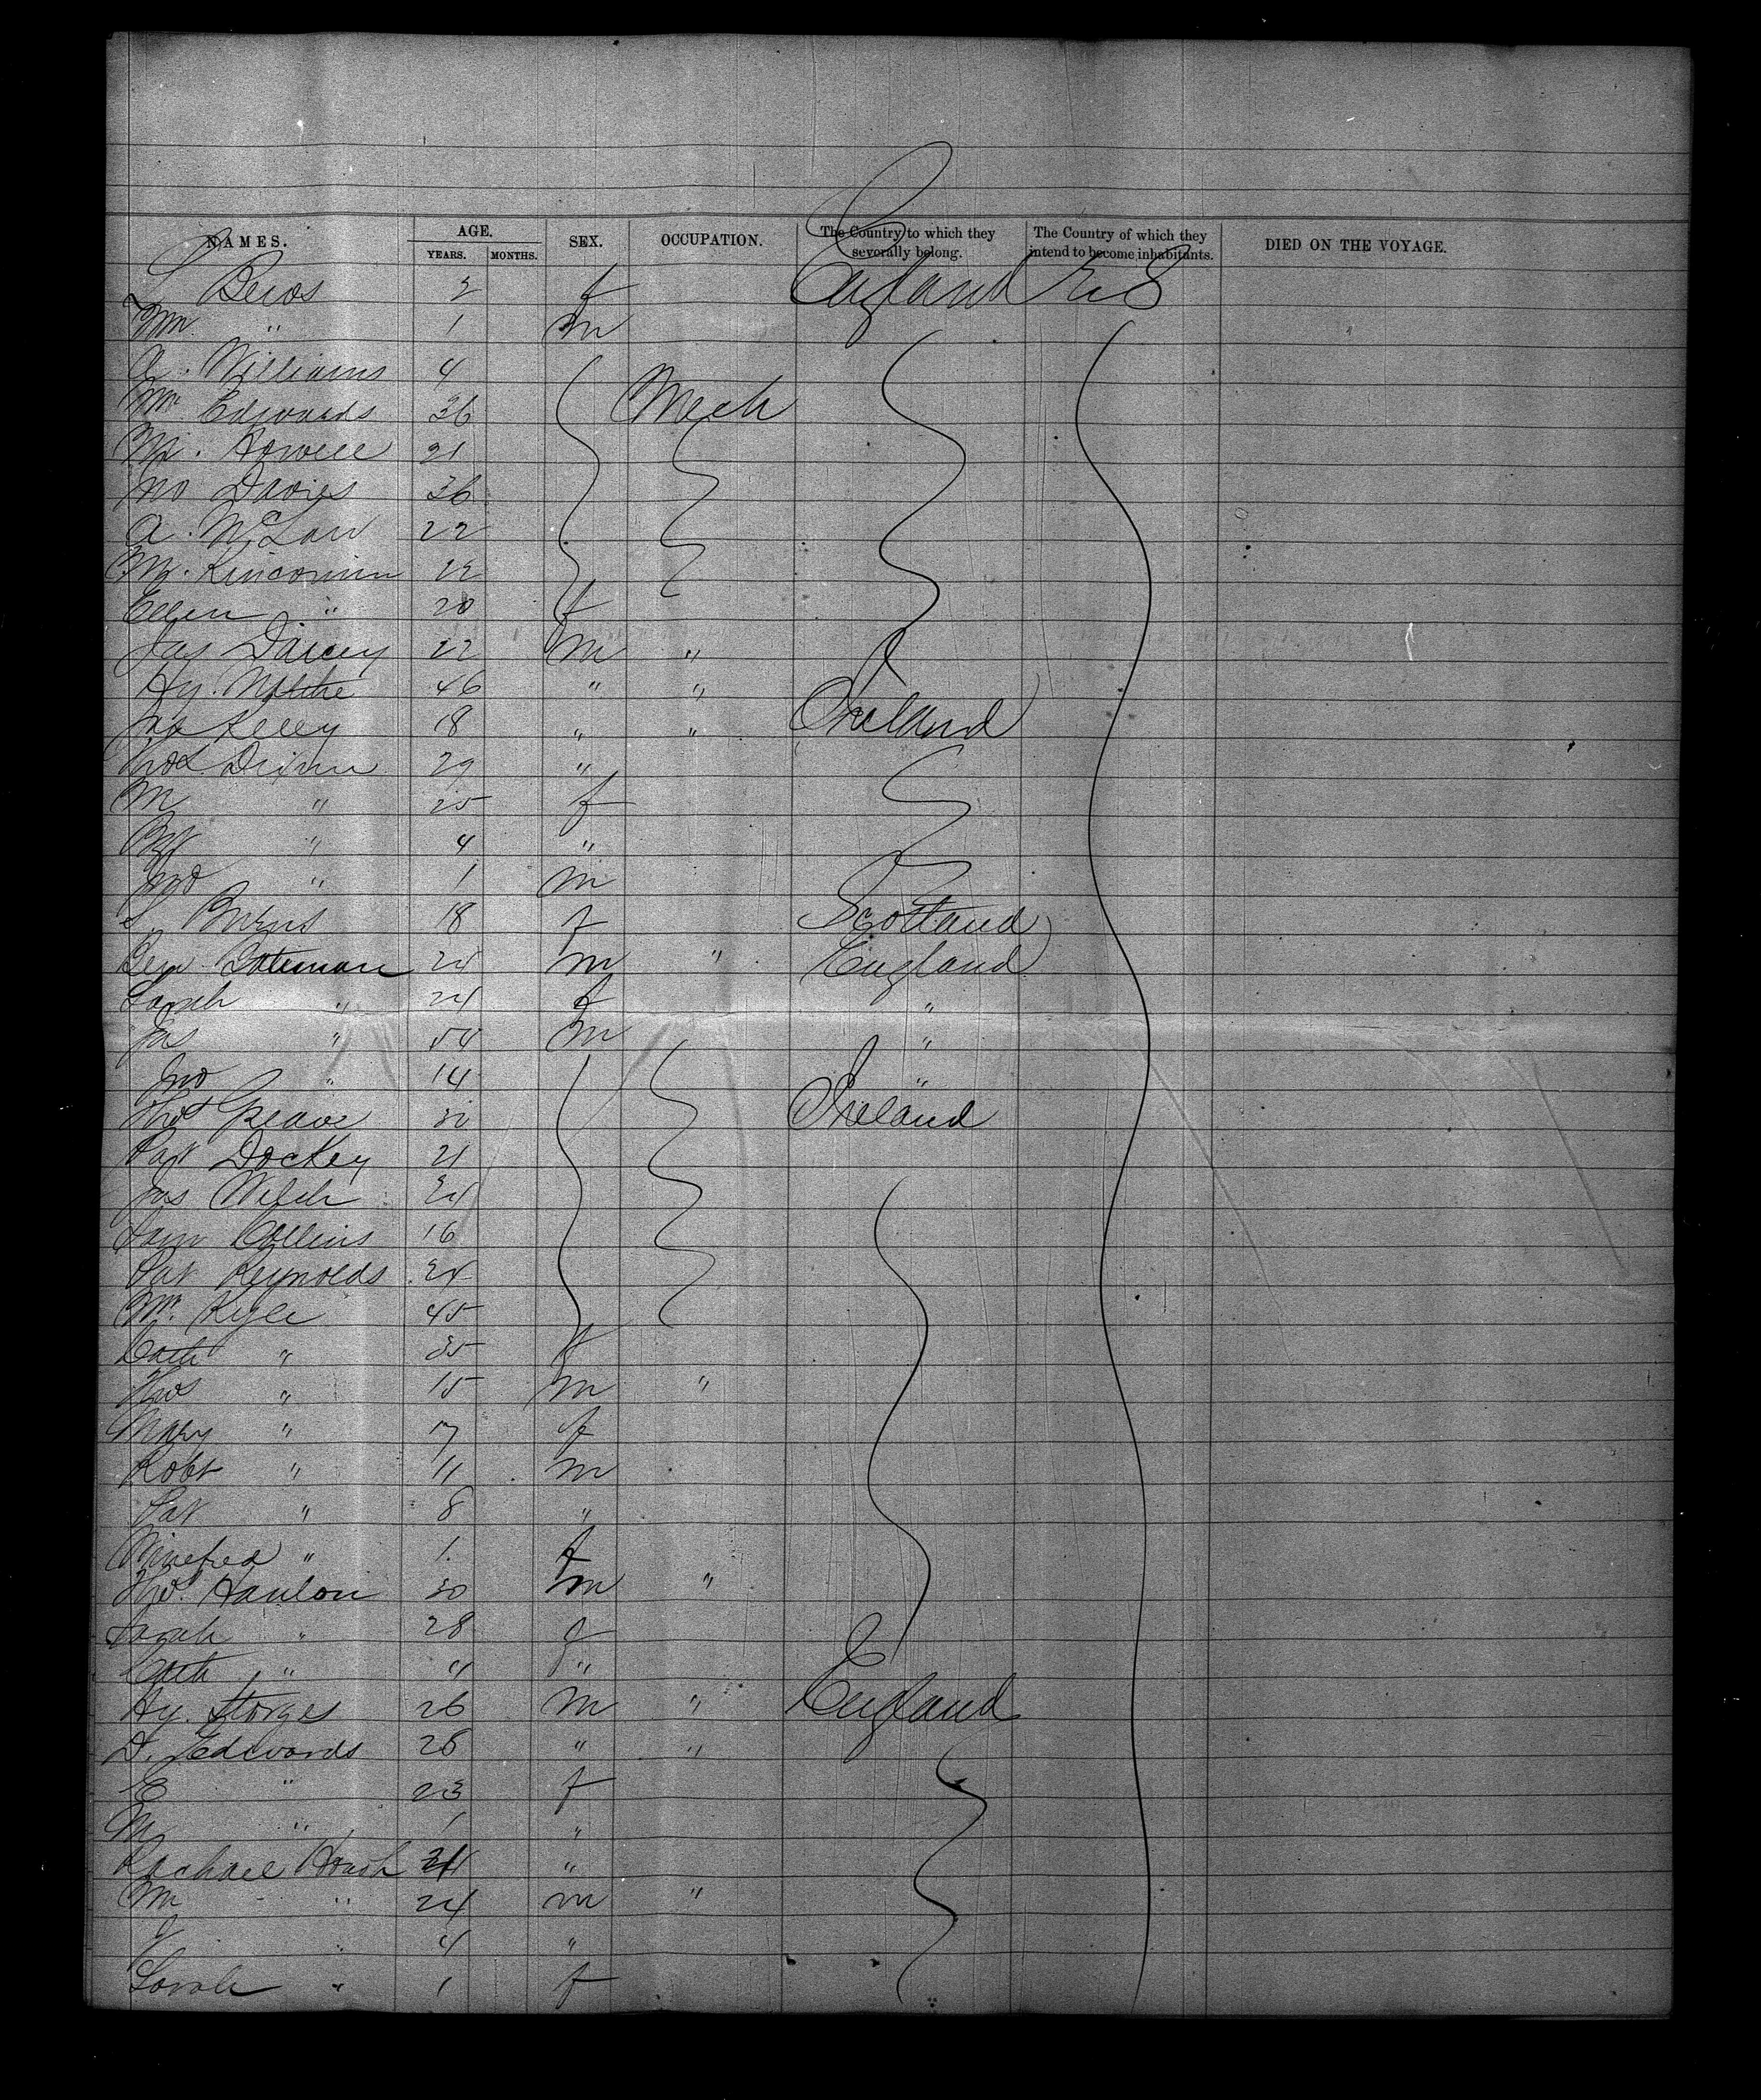 NAMES. AGE. YEARS. MONTHS. SEX. OCCUPATION. The Country to which they severally belong. The Country of which they intend to become inhabitants. DIED ON THE VOYAGE.
2 f England U S
Wm " 1 m
A. Williams 4
Wm Edwards 36 Mech
21
Jno Davies 36
A. 22
M. 22
Ellen " 20 f
Jas Darcey 22 m "
Hy. 46 " "
Jno Kelly 18 " " Ireland
Thos 29 "
M " 25 f
" 4 "
Jno " 1 m
S. Burns 18 f Scotland
Benj Bateman 24 m " England
Sarah " 24 f "
Jas " 54 m "
Jno " 14 "
Thos Greave 30 Ireland
Pat Dockey 21
Jas Welch 24
Sam Collins 16
Pat Reynolds 24
Wm. Kyle 45
Cath " 35 f
Thos " 15 m "
Mary " 7 f
Robt " 11 m
Pat " 8 "
Winefred " 1 f
Thos. Hanlon 30 m "
Sarah " 28 f
Cath " 4 "
Hy. Storges 26 m " England
D. Edwards 28 " "
E " 23 f
M " 1 "
Rachael "
Wm " 24 m "
J " 4 "
Sarah " 1 f